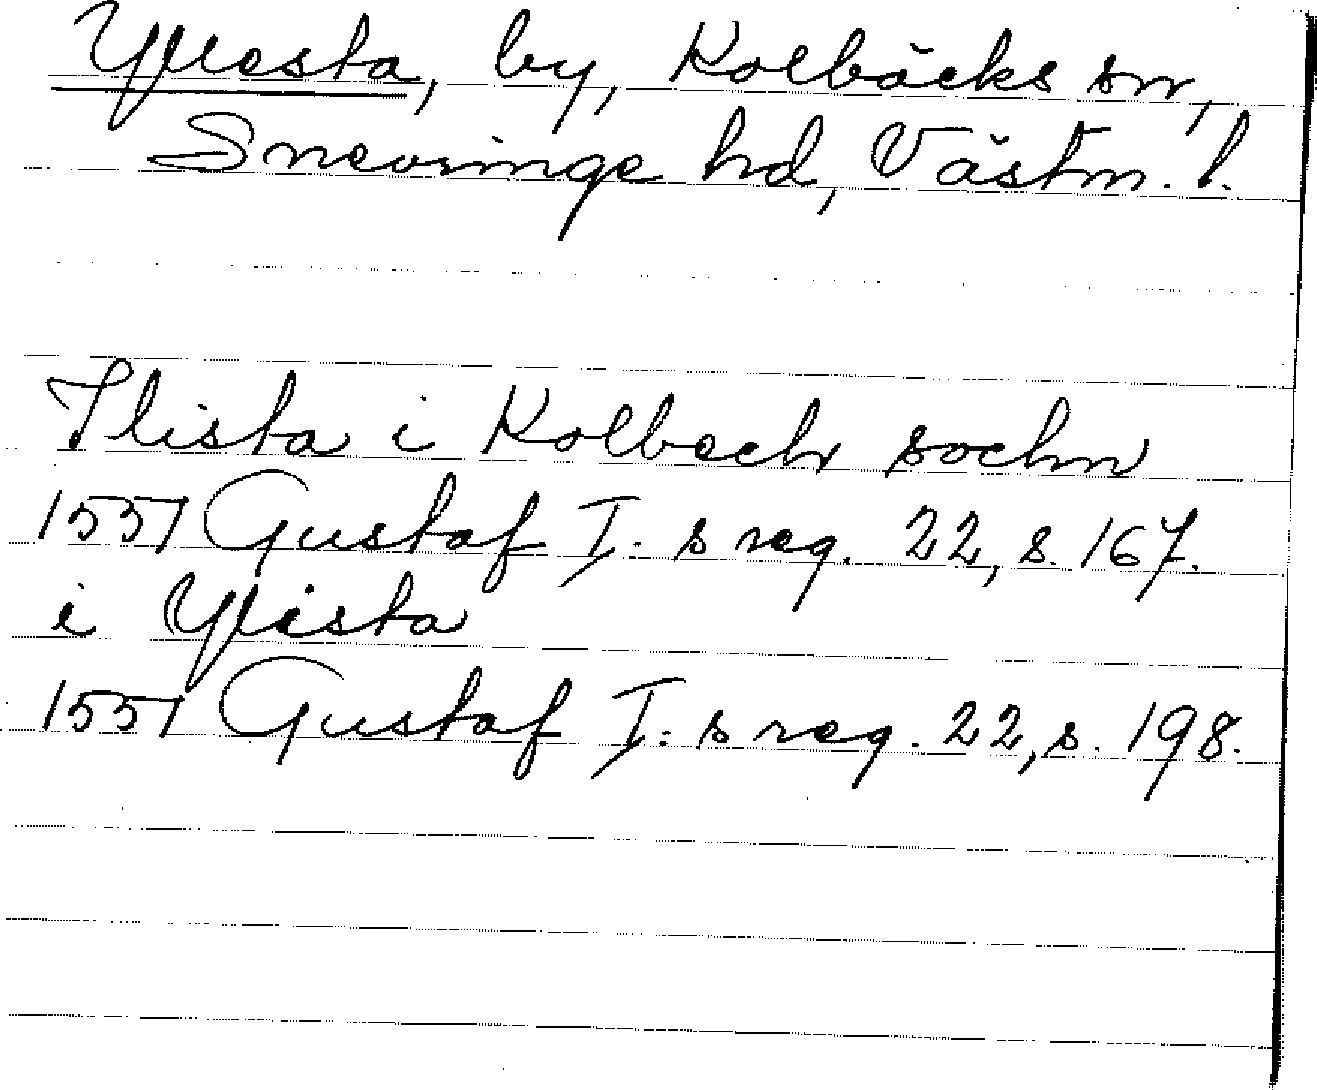 Yllesta, by, Kolbäcks sn,
Snevringe hd, Västm. l.
Ilista i Kolbech sochn
1551 Gustaf I. s reg. 22, s. 167.
i Ylista
1551 Gustaf I: s reg. 22, s. 198.